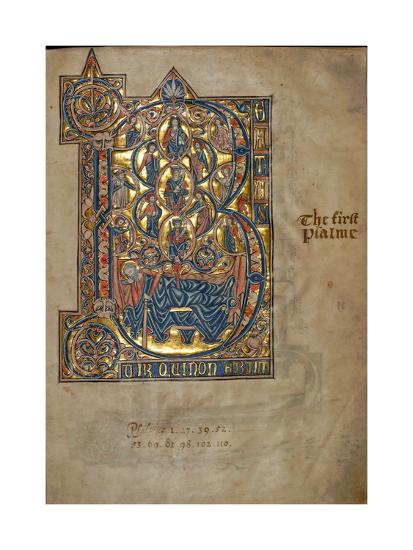 BEATUS
UIR QUINON
The first
Psalme
Psalmes 1. 27. 39. 52.
53. 69. 81. 98. 102. 110.